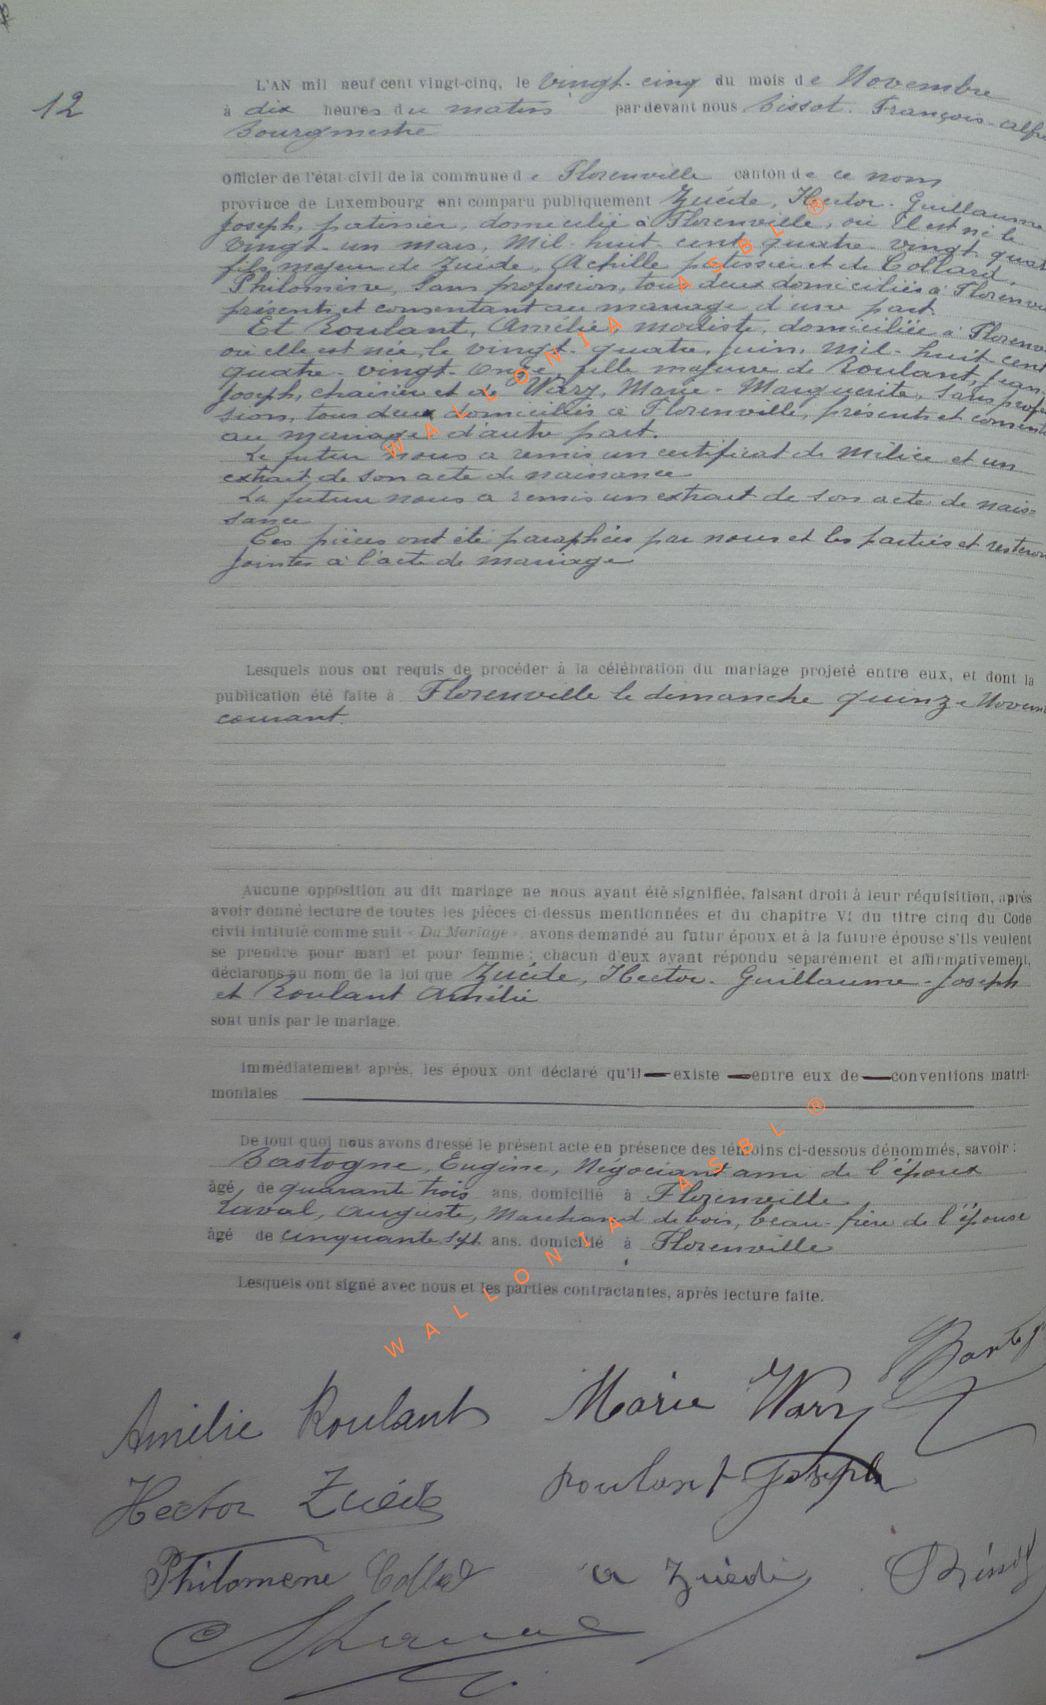 12
L'AN mil neuf cent vingt-cinq, le vingt-cinq du mois de Novembre
à dix heures du matin par devant nous Bissot, François-Alfre
Bourgmestre
Officier de l'état-civil de la commune de Florenville canton de ce nom
province de Luxembourg ont comparu publiquement Zuède, Hector-Guillaume
Joseph, patissier, domicilié à Florenville, où il est né le
vingt-un mars, Mil-huit-cent-quatre-vingt-quat
fils majeur de Zuède, Achille patissier et de Collard,
Philomène, sans profession, tous deux domiciliés à Florenvi
présents et consentant au mariage d'une part.
Et Roulant, Amélie, modiste, domiciliée à Florenv
où elle est née, le vingt-quatre juin, Mil-huit cent
quatre-vingt-onze, fille majeure de Roulant, Jean
Joseph, chaisier et de Wary, Marie-Marguerite, sans profes
sion, tous deux domiciliés à Florenville, présents et consenta
au mariage d'autre part.
Le futur nous a remis un certificat de milice et un
extrait de son acte de naissance
La future nous a remis un extrait de son acte de nais=
sance
Ces pièces ont été paraphées par nous et les parties et resteron
jointes à l'acte de mariage
Lesquels nous ont requis de procéder à la célébration du mariage projeté entre eux, et dont la
publication été faite à Florenville le dimanche quinze Novem
courant.
Aucune opposition au dit mariage ne nous ayant été signifiée, faisant droit à leur réquisition, après
avoir donné lecture de toutes les pièces ci-dessus mentionnées et du chapitre VI du titre cinq du Code
civil intitulé comme suit « Du Mariage », avons demandé au futur époux et à la future épouse s'ils veulent
se prendre pour mari et pour femme ; chacun d'eux ayant répondu séparément et affirmativement,
déclarons au nom de la loi que Zuède, Hector-Guillaume-Joseph
et Roulant Amélie
sont unis par le mariage.
Immédiatement après, les époux ont déclaré qu'il — existe — entre eux de — conventions matri-
moniales
De tout quoi nous avons dressé le présent acte en présence des témoins ci-dessous dénommés, savoir :
Bastogne, Eugène, Négociant ami de l'époux
âgé de quarante trois ans, domicilié à Florenville
Laval, Auguste, Marchand de bois, beau-frère de l'épouse
âgé de cinquante sept ans, domicilié à Florenville
Lesquels ont signé avec nous et les parties contractantes, après lecture faite.
Amélie Roulant Marie Wary
Hector Zuède Roulant Joseph
Philomène a Zuède
WALLONIA ASBL ®
WALLONIA ASBL ®